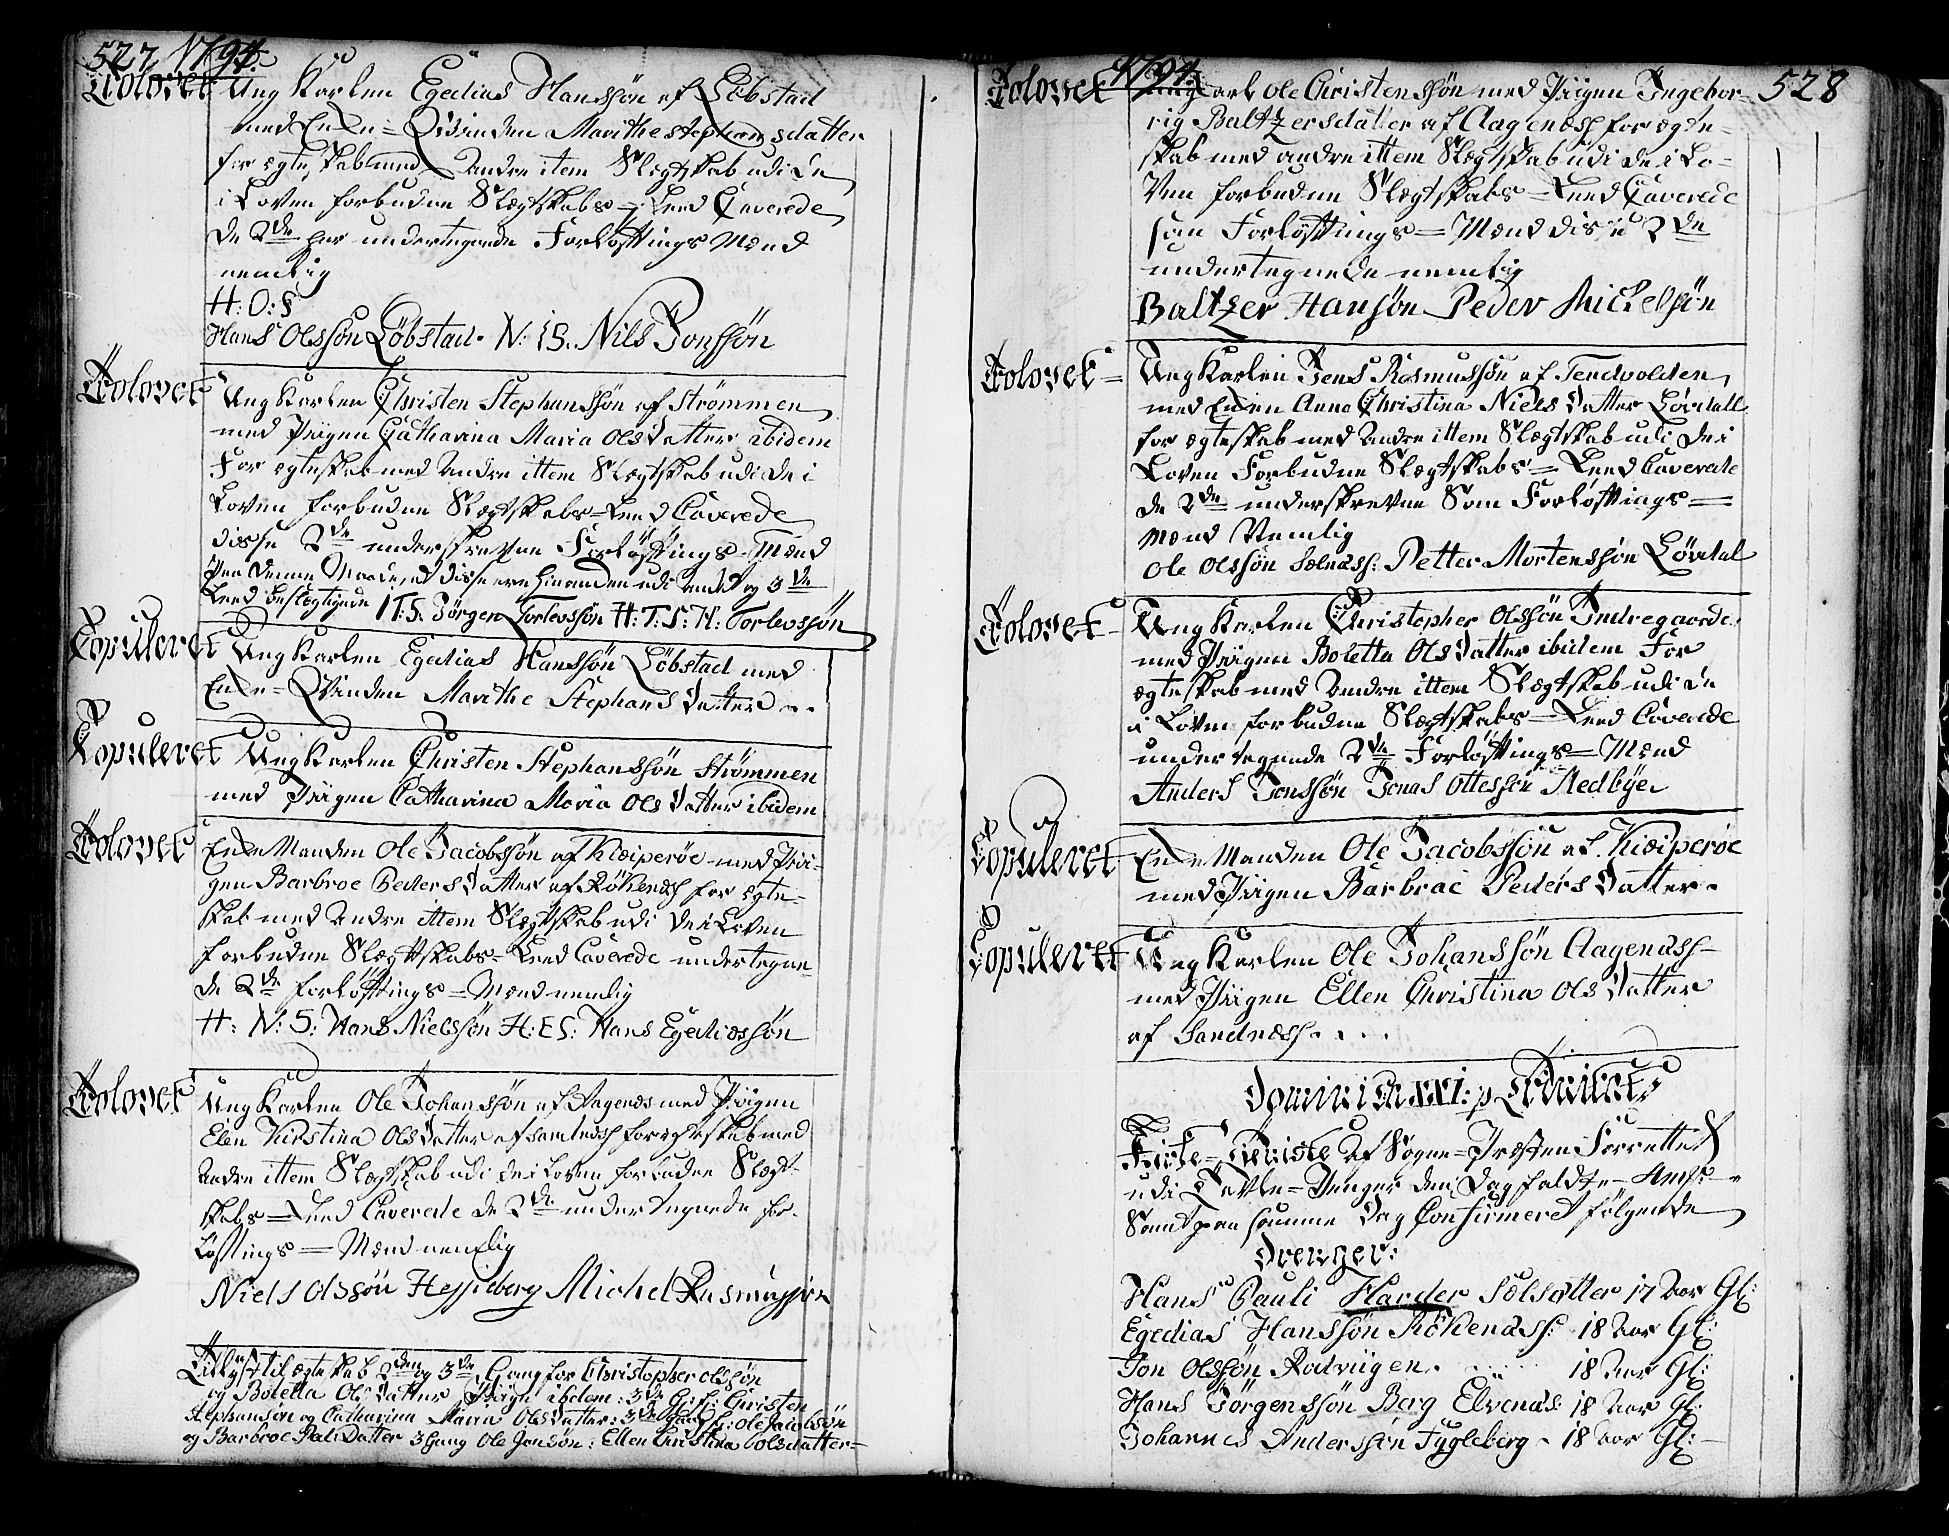 527. 1794.
Trolovet Ung Karlen Egedius Hanssøn af Løbstad
med Enke = Qvinden Marithe Stephansdatter
for ægteskab med andre item Slægtskab udi de
i Loven forbudne Slægtskabs = Leed Caverede
De 2de her undertegnede Forløftnings Mænd
nemlig
H: O: S
Hans Olssøn Løbstad. N: I S. Nils Jonssøn
Trolovet Ung Karlen Christen Stephanssøn af Strømmen
med Piigen Catharina Maria Olsdatter ibidem
For ægteskab med andre ittem Slægtskab udi de i
Loven forbudne Slægtskabs = Leed Caverede
disse 2de underskrevne Forløftnings = Mænd
paa denne Maade, at disse ere hinanden udi andet og 3de
Leed beslægtigede I T: S. Jörgen Torlevssøn H: T: S: H: Torlevssøn
Copuleret Ung Karlen Egedius Hanssøn Löbstad med
Enke = Qvinden Marithe Stephans Datter
Copuleret Ung Karlen Christen Stephanssøn Strømmen
med Piigen Catharina Maria Ols Datter ibidem
Trolovet Enke Manden Ole Jacobssøn af Kiæiperøe med Pii-
gen Barbroe Peders Datter af Rökenæss for ægte-
skab med andre ittem Slægtskab udi de i Loven
forbudne Slægtskabs = Leed Caverede undertegne-
de 2de forløftnings = Mænd nemlig
H: N: S: Hans Nielssøn H: E S: Hans Egediussøn
Trolovet Ung Karlen Ole Johanssøn af Aagenæs med Piigen
Elen Kirstina Ols Datter af Sandnæss for ægteskab med
andre ittem Slægtskab udi de i Loven forbudne Slægt-
skabs = Leed Caverede de 2de undertegnede For-
løftnings = Mænd nemlig
Niels Olssøn Hessieberg Michel Rasmussøn
Tillyst til ægteskab 2den og 3de Gang for Christopher Olssøn
og Boletta Ols Datter Piige ibidem: 3de Christen
Stephansøn og Catharina Maria Olsdatter: 3de Gang Ole Jacobsøn
og Barbroe Peds Datter 3 Gang Ole Jonsøn: Ellen Christina Olsdatter
1794. 528
Trolovet Ung Karl Ole Christenssøn med Piigen Ingebor-
rig Baltzersdatter af Aagenæss for ægte-
skab med andre ittem Slægtskab udi de i Lo-
ven forbudne Slægtskabs = Leed Caverede
som Forløftnings = Mænd disse 2de
undertegnede nemlig
Baltzer Hansøn Peder Mickelsøn
Trolovet = Ung Karlen Jens Rasmussøn af Tendvolden
med Enken Anna Christina Niels Datter Lövdall
for ægteskab med andre ittem Slægtskab udi de i
Loven Forbudne Slægtskabs = Leed Caverede
de 2de underskrevne Som Forløftnings =
Mænd Nemlig
Ole Olssøn Sælnæss: Petter Mortenssøn Lövdal
Trolovet Ung Karlen Christopher Olssøn Indregaarde
med Piigen Boletta Ols Datter ibidem For
ægteskab med andre ittem Slægtskab udi de
i Loven forbudne Slægtskabs = Leed Caverede
undertegnede 2de Forløftnings = Mænd
Anders Jonssøn Jonas Ottessøn Nedbye
Copuleret Enke Manden Ole Jacobssøn af Kiæiperøe
med Piigen Barbrae Peders Datter.
Copuleret Ung Karlen Ole Johanssøn Aagenæss
med Piigen Ellen Christina Ols Datter
af Sandnæss. . . .
Dominica XXI: p. Trinitat:
Kirke = Tieniste af Sogne = Præsten Forrettet
udi Tavle = Penger den Dag faldt
Samt paa samme Dag Confirmeret følgende
Drenger:
Hans Pauli Harder Sælsætter 17 Aar Gl:
Egedias Hanssøn Rökenæss: 18 Aar Gl:
Jon Olssøn Rødviigen. 18 Aar Gl:
Hans Jörgenssøn Berg Elvenæs: 18 Aar Gl:
Johannes Anderssøn Fygleberg - 18 Aar Gl: